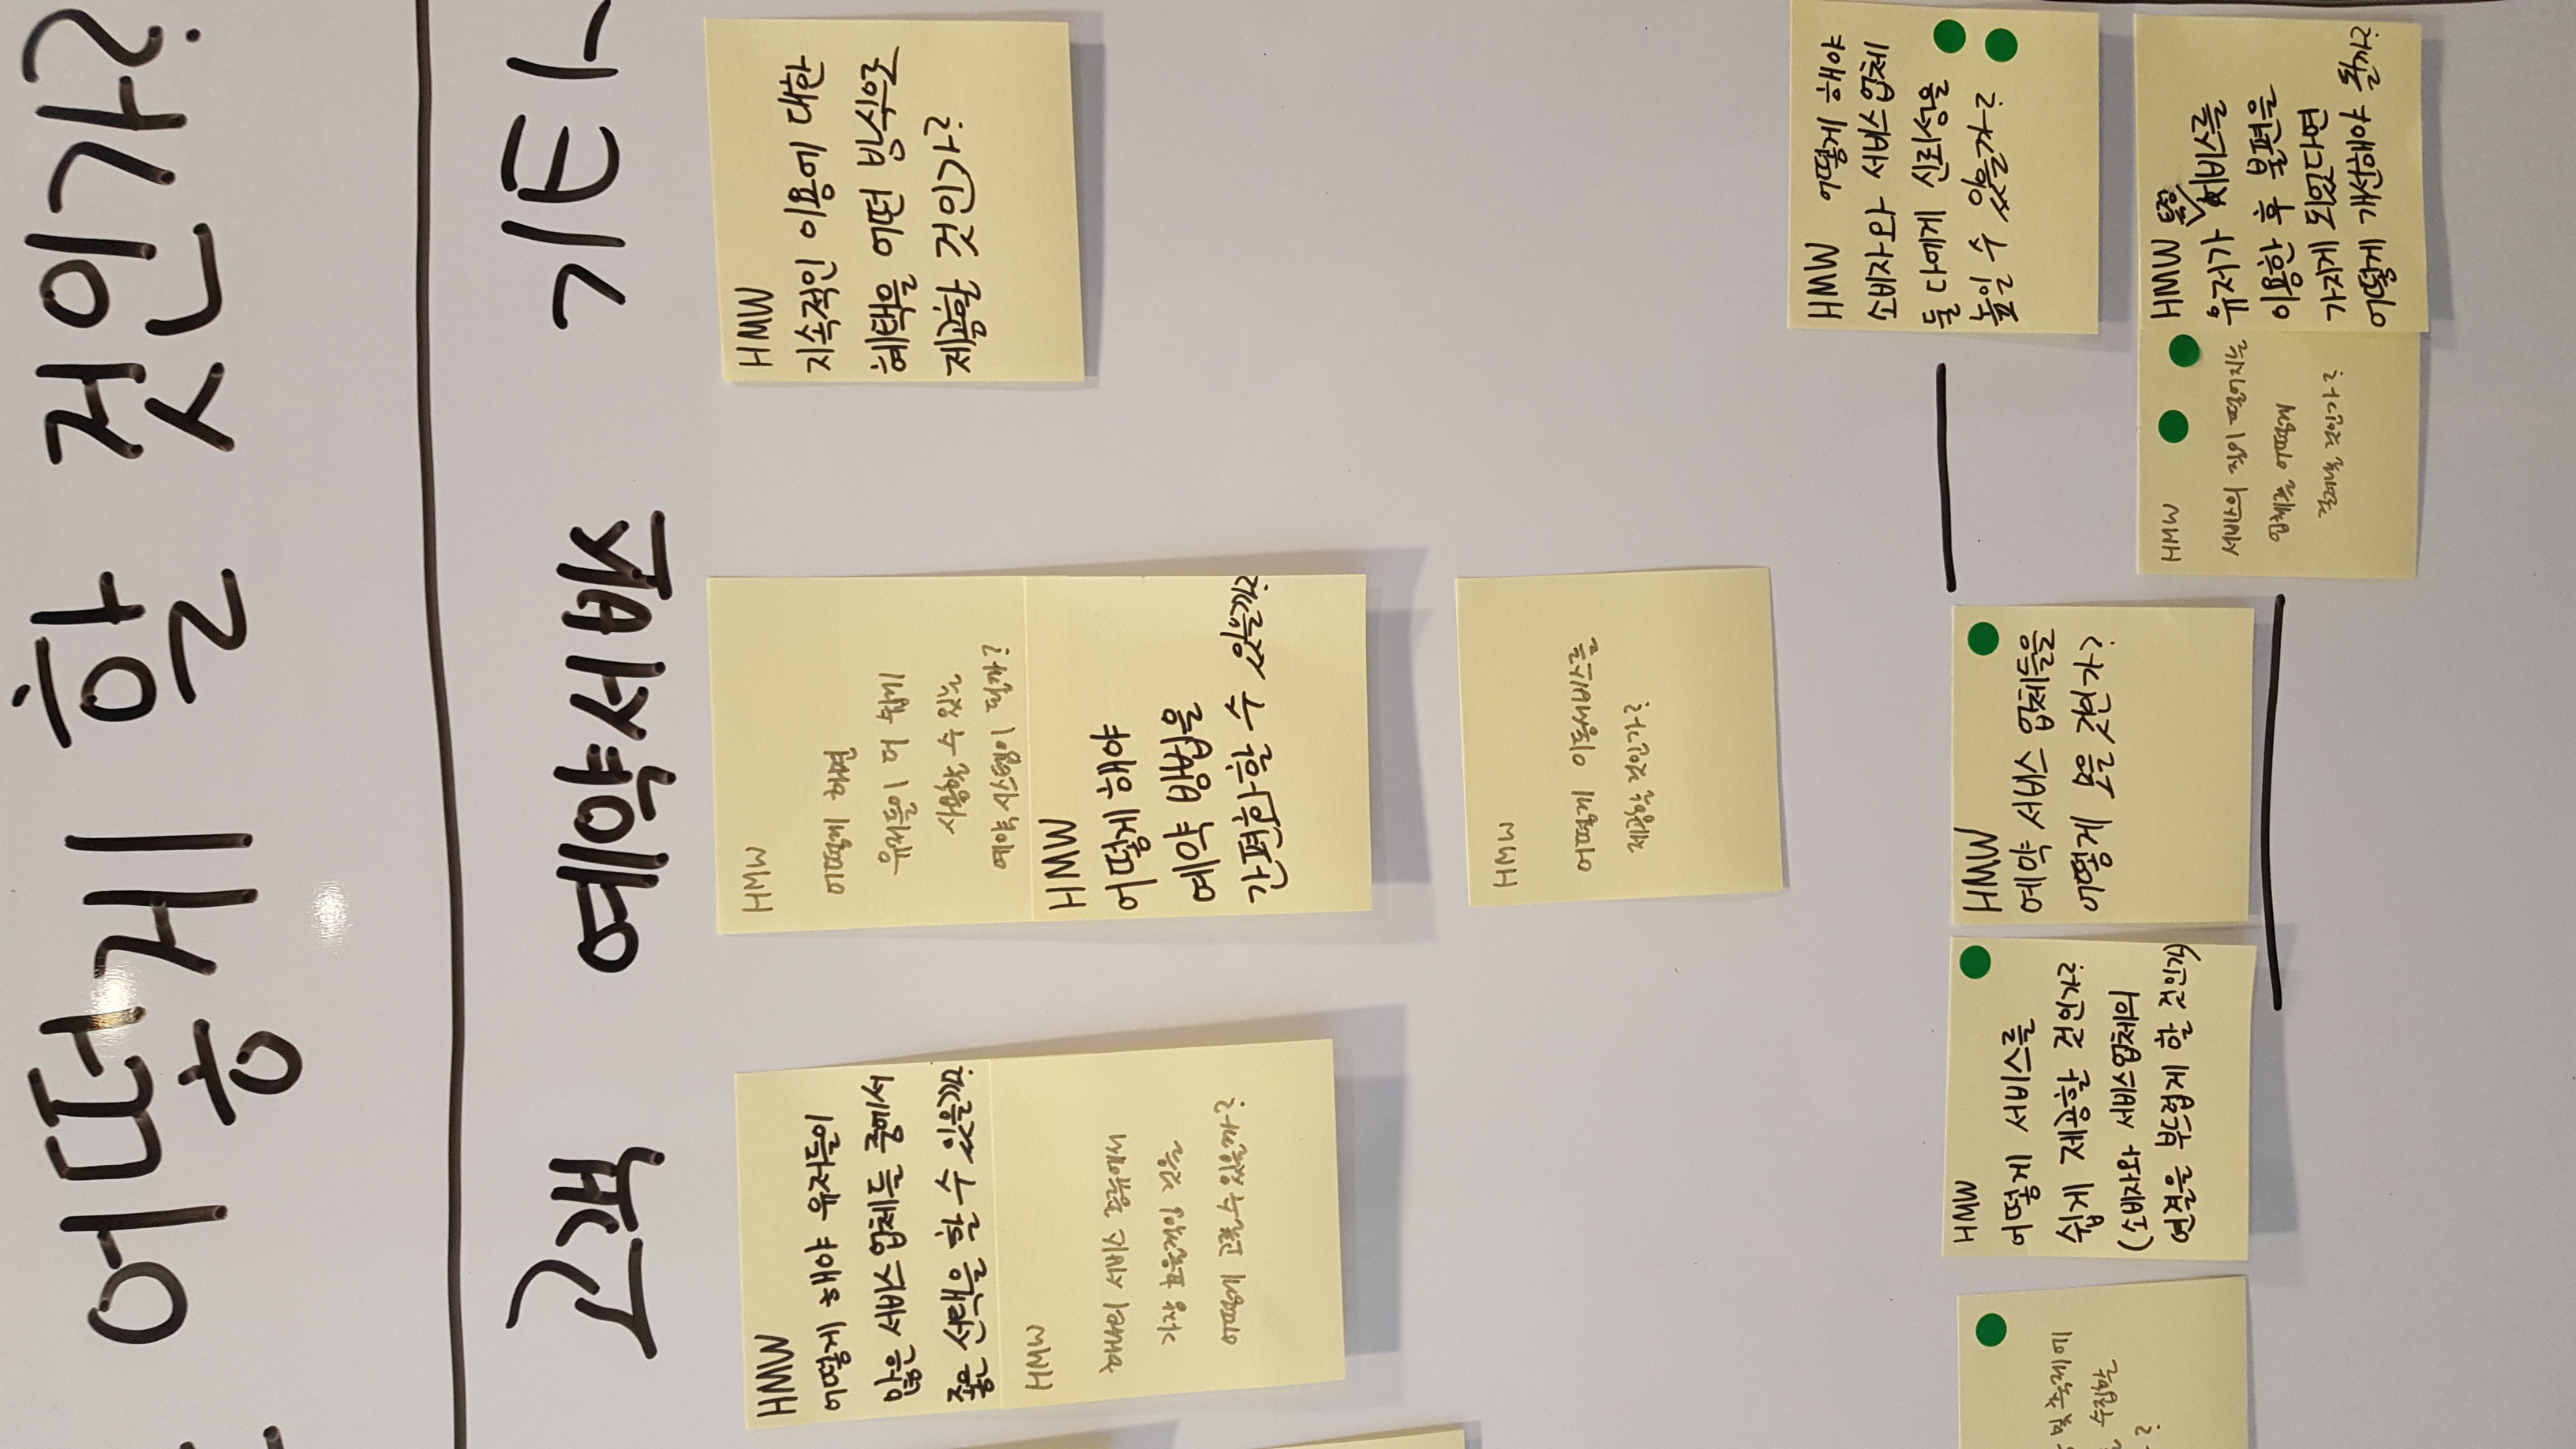 어떻게 할 것인가?
고객
예약서비스
기타
HMW
어떻게 해야 유저들이
많은 서비스 업체들 중에서
좋은 선택을 할 수 있을까?
HMW
하나의 서비스 종류에서
가장 효율적인 것을
어떻게 고를 수 있을까?
HMW
어떻게 하면
유저들이 더 쉽게
사용할 수 있는
예약 시스템이 될까?
HMW
어떻게 해야
예약 방법을
간편화할 수 있을까?
HMW
어떻게 이동서비스를
제공할 것인가?
HMW
지속적인 이용에 대한
혜택을 어떤 방식으로
제공할 것인가?
및 축제에
수집할
?
HMW
어떻게 서비스를
쉽게 제공할 것인가?
(소비자와 서비스업체의
연결을 부드럽게 할 것인가)
HMW
예약 서비스 업체들을
어떻게 모을 것인가?
HMW 어떻게 해야
소비자와 서비스업체
둘 다에게 신뢰성을
높일 수 있을까?
HMW
서비스의 질이 떨어지는
업체를 어떻게
걸러낼 것인가?
HMW 특정
유저가 서비스를
이용한 후 불편을
가지게 되었다면
어떻게 개선해야 될까?